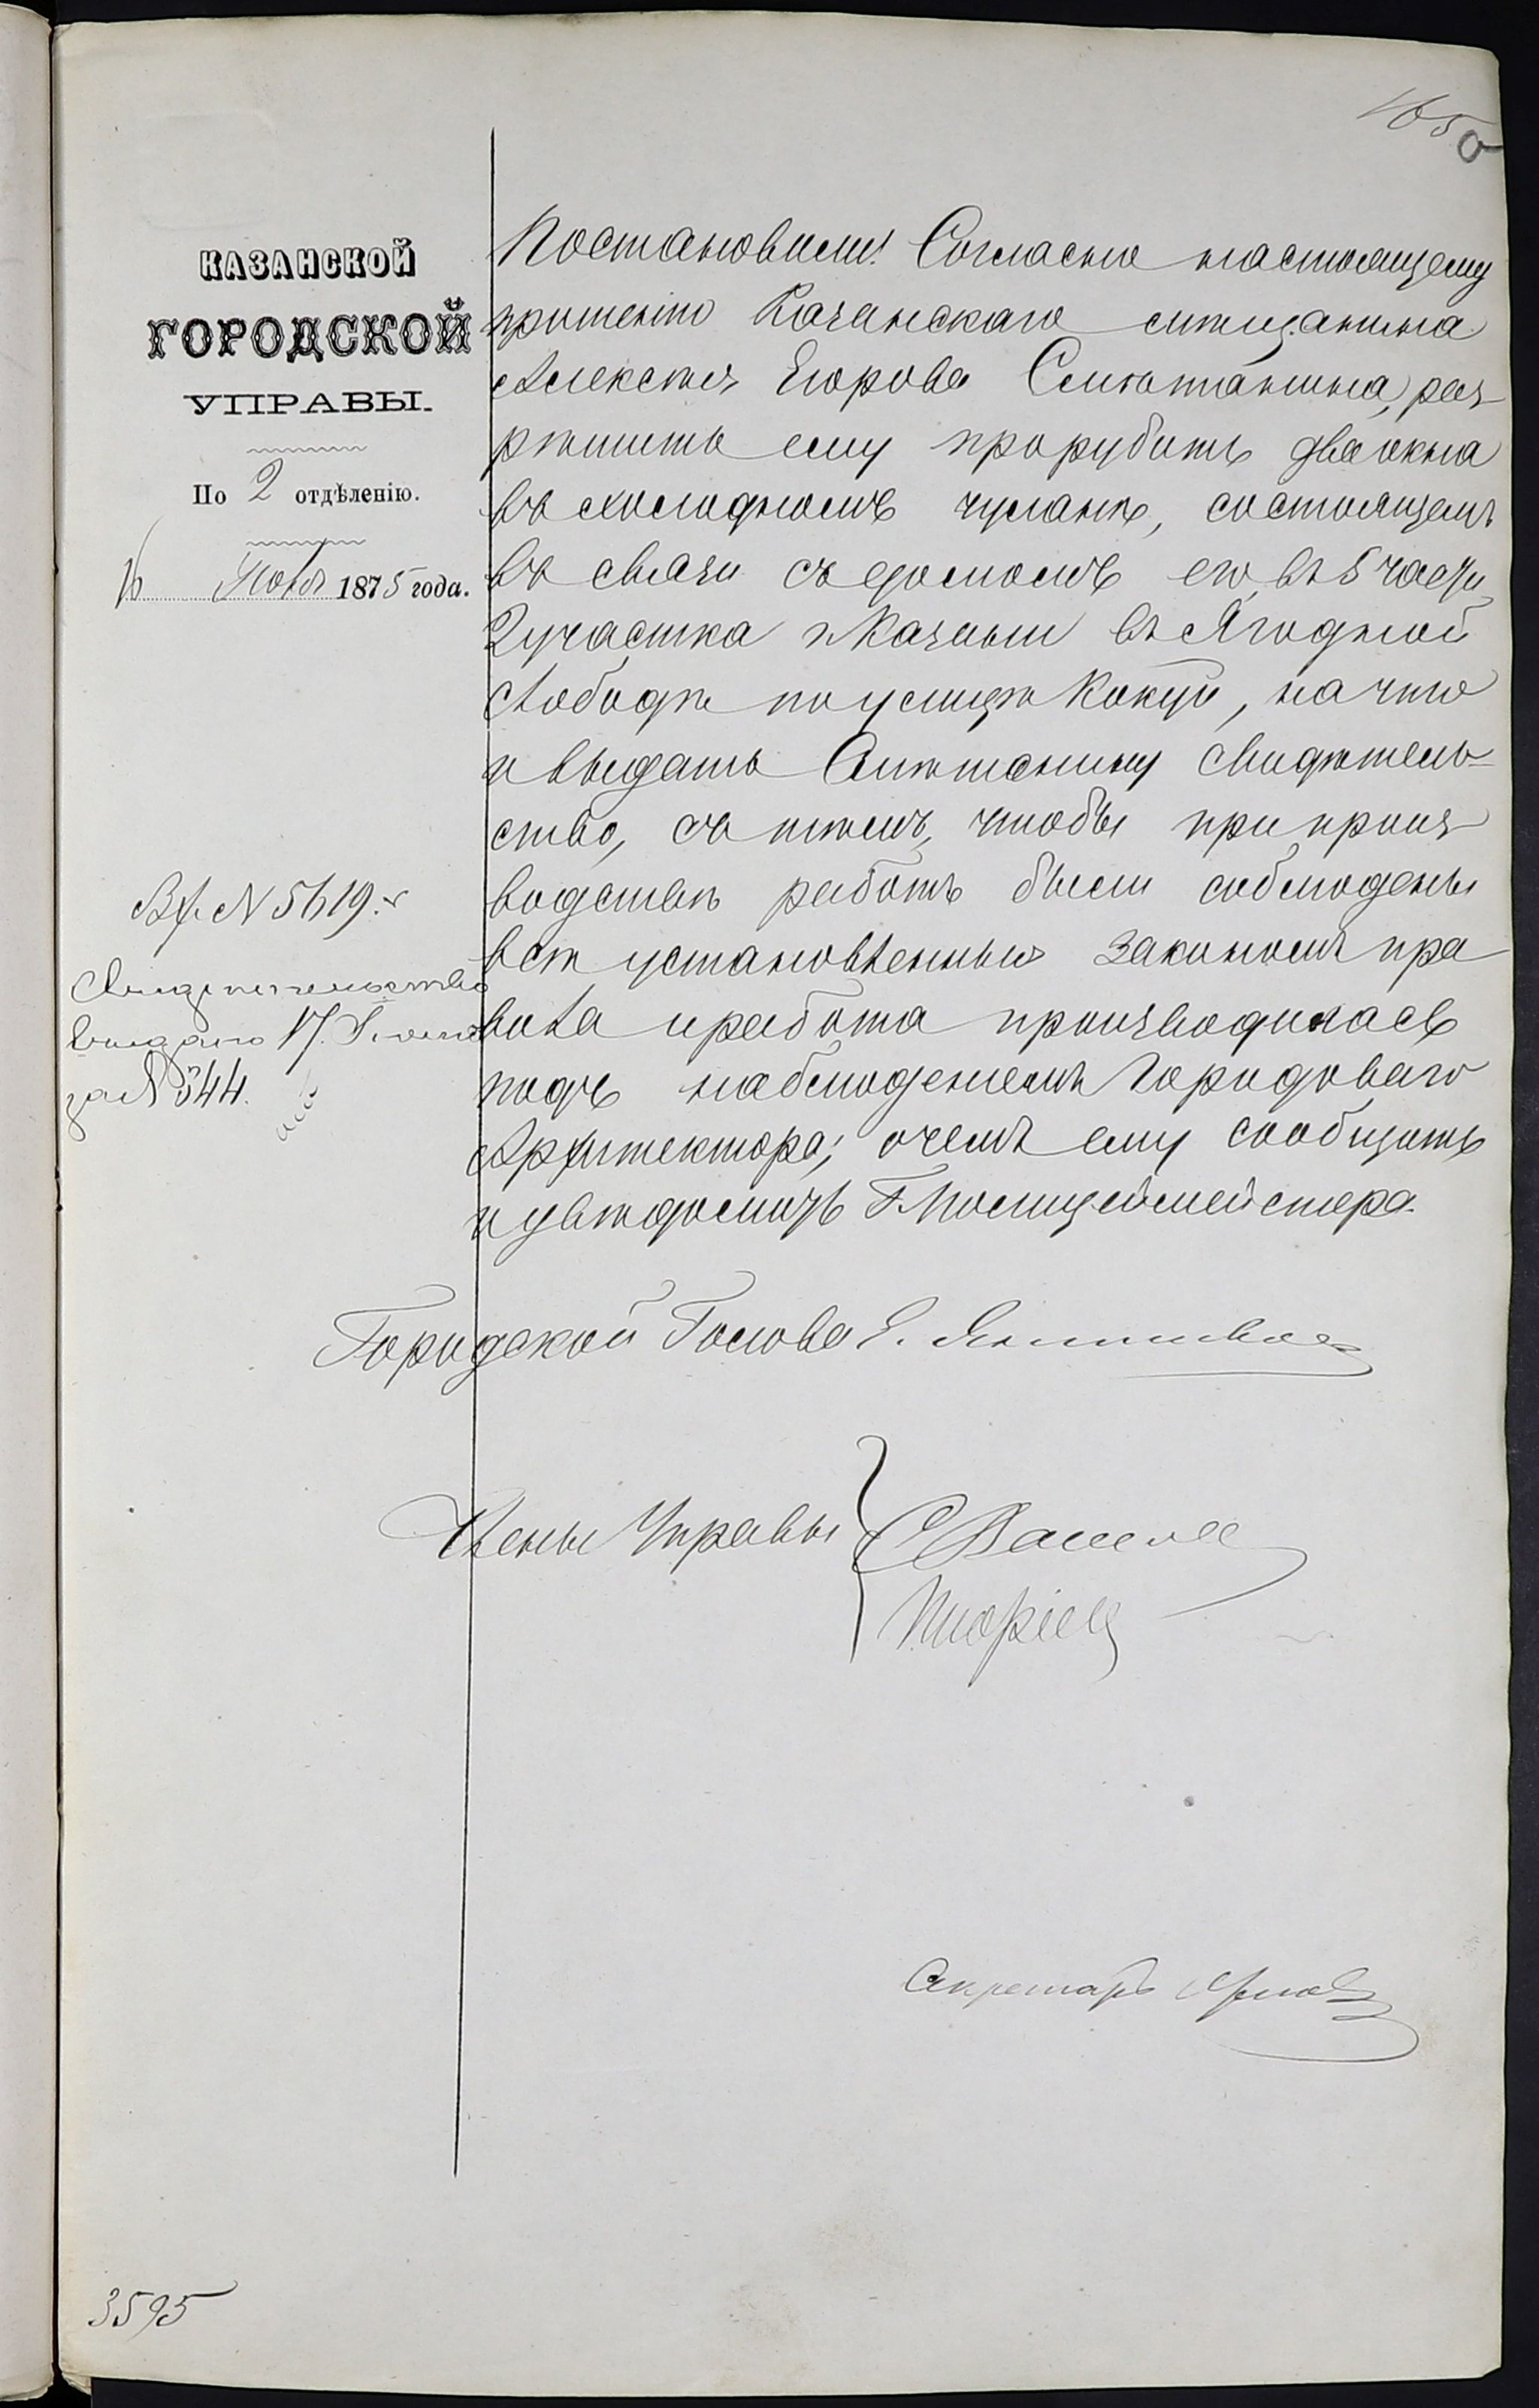 165
КАЗАНСКОЙ
ГОРОДСКОЙ
УПРАВЫ.
По 2 отдѣленію.
16 1875 года.
Вх. № 5619.
Свидѣтельство
выдано 17
за № 544.
Постановили: Согласно настоящему
прошенію Казанскаго мѣщанина
Алексѣя Егорова раз-
рѣшить ему прорубить два окна
въ холодномъ чуланѣ, состоящемъ
въ связи съ домомъ его, въ 5 части,
2 участка г. Казани въ Ягодной
слободѣ по улицѣ Кокуй, на что
и выдать свидѣтель-
ство, съ тѣмъ, чтобы при произ-
водствѣ работъ были соблюдены
всѣ установленныя закономъ пра-
вила и работа производилась
подъ наблюденіемъ Городоваго
Архитектора; о чемъ ему сообщить
и увѣдомить Г. Полицеймейстера.
Городской Голова Е.
Члены Управы
Секретарь
3595